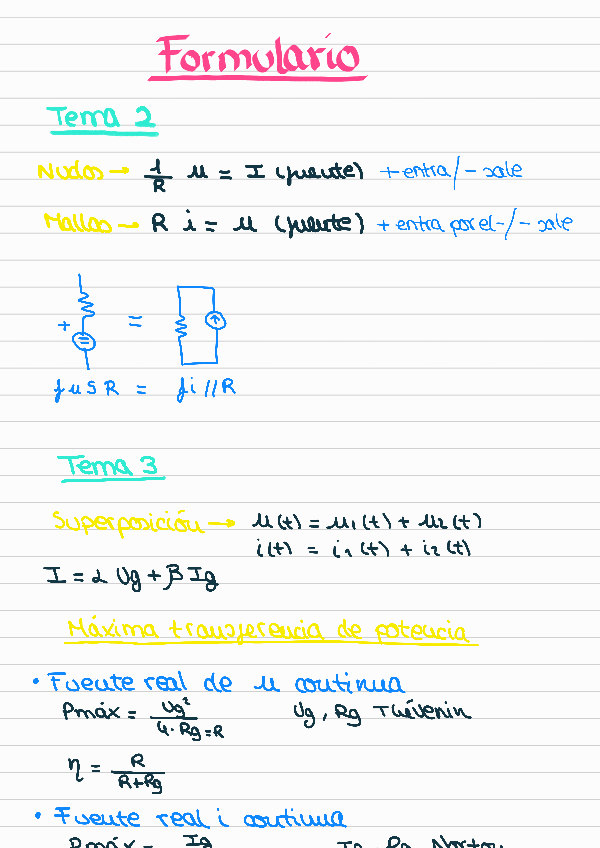 Formulario
Tema 2
Nudos → 1/R u = I (fuente) + entra/- sale
Mallas → R i = u (fuente) + entra por el -/- sale
+ =
fuSR = fi//R
Tema 3
Superposición → u(t) = u₁(t) + u₂(t)
i(t) = i₁(t) + i₂(t)
I = α Ug + β Ig
Máxima transferencia de potencia
• Fuente real de u continua
Pmáx = Ug²/4·Rg=R Ug, Rg Thévenin
η = R/R+Rg
• Fuente real i continua
Pmáx = Ig Ig Rg Norton